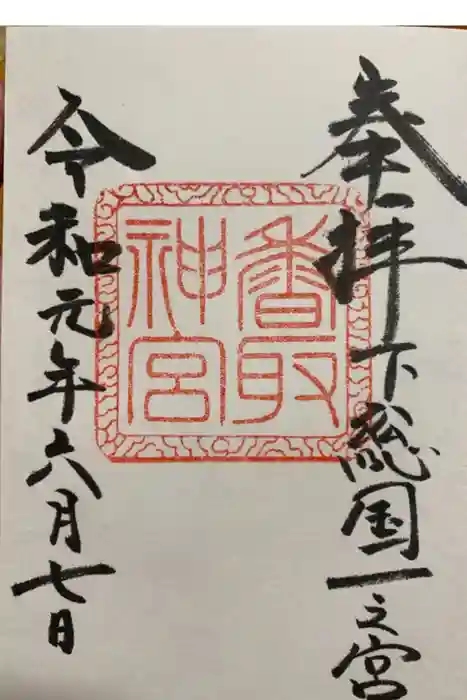 奉拝 下総国一之宮
香取
神宮
令和元年六月七日